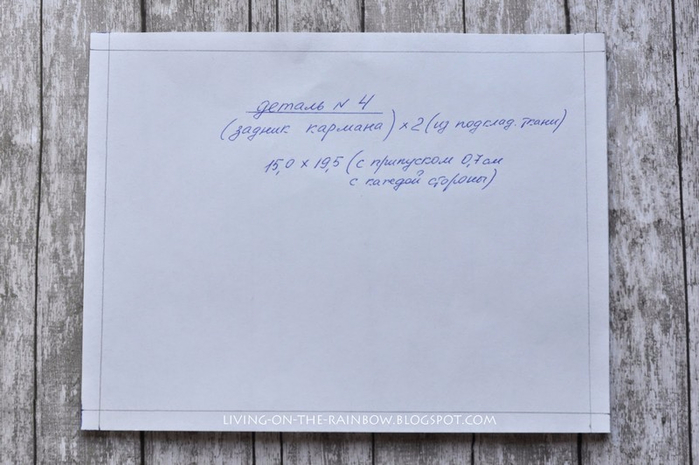 деталь N 4
(задник кармана) × 2 (из подклад. ткани)
15,0 × 19,5 (с припуском 0,7 см
с каждой стороны)
LIVING-ON-THE-RAINBOW.BLOGSPOT.COM